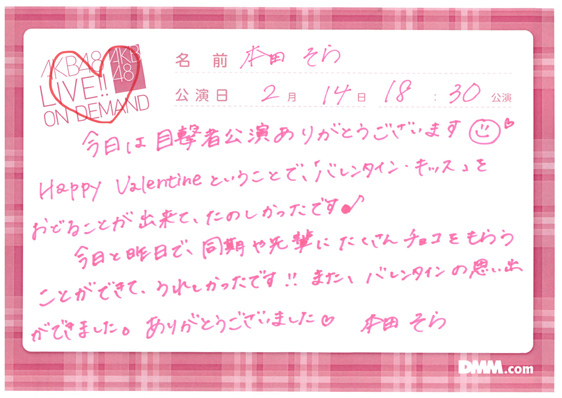 AKB48
LIVE!!
ON DEMAND
AKB
48
名 前 本田 そら
公演日 2月 14日 18:30公演
今日は目撃者公演ありがとうございます
Happy Valentine ということで、「バレンタイン・キッス」を
おどることが出来て、たのしかったです♪
今日と昨日で、同期や先輩にたくさんチョコをもらう
ことができて、うれしかったです!! また、バレンタインの思い出
ができました。ありがとうございました♡ 本田 そら
DMM.com